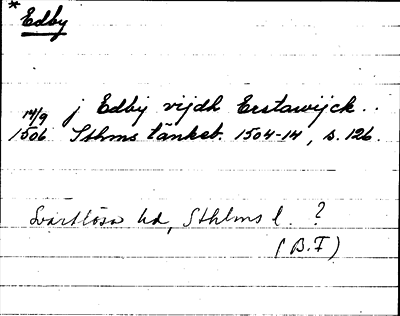 * Edby
14/9 j Edby vijdh Erstawijck..
1506 Sthms tänkeb. 1504-14, s. 126.
Svartlösa hd, Sthlms l. ?
(B.F)